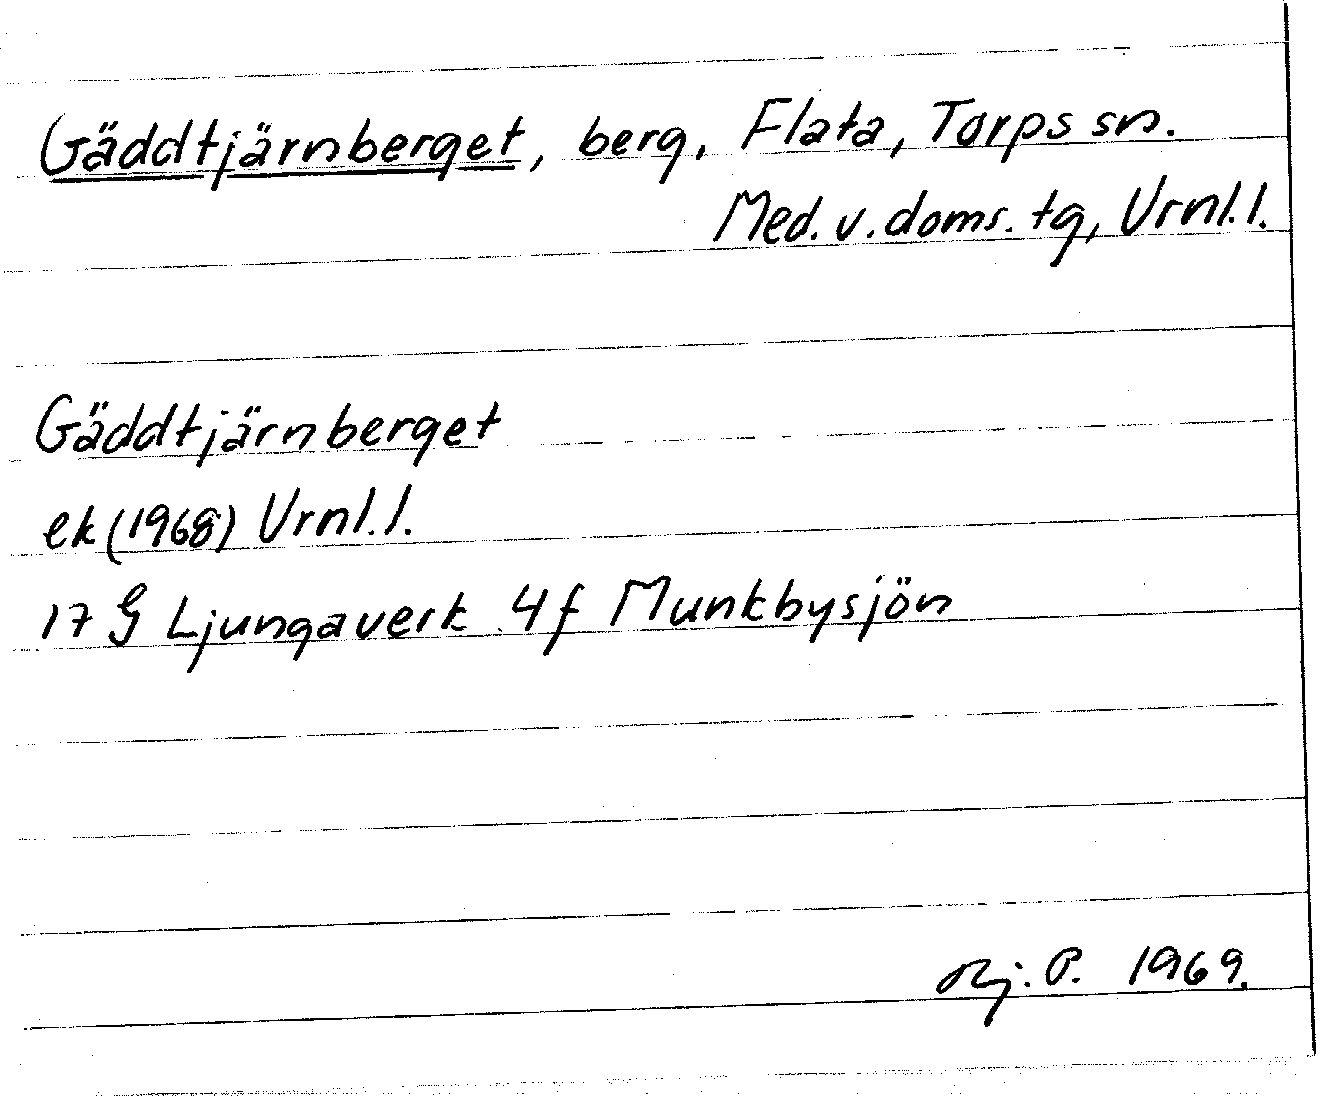 Gäddtjärnberget, berg, Flata, Torps sn.
Med. v. doms. tg, Vrnl. l.
Gäddtjärnberget
ek (1968) Vrnl. l.
17 G Ljungaverk 4f Munkbysjön
P. 1969.